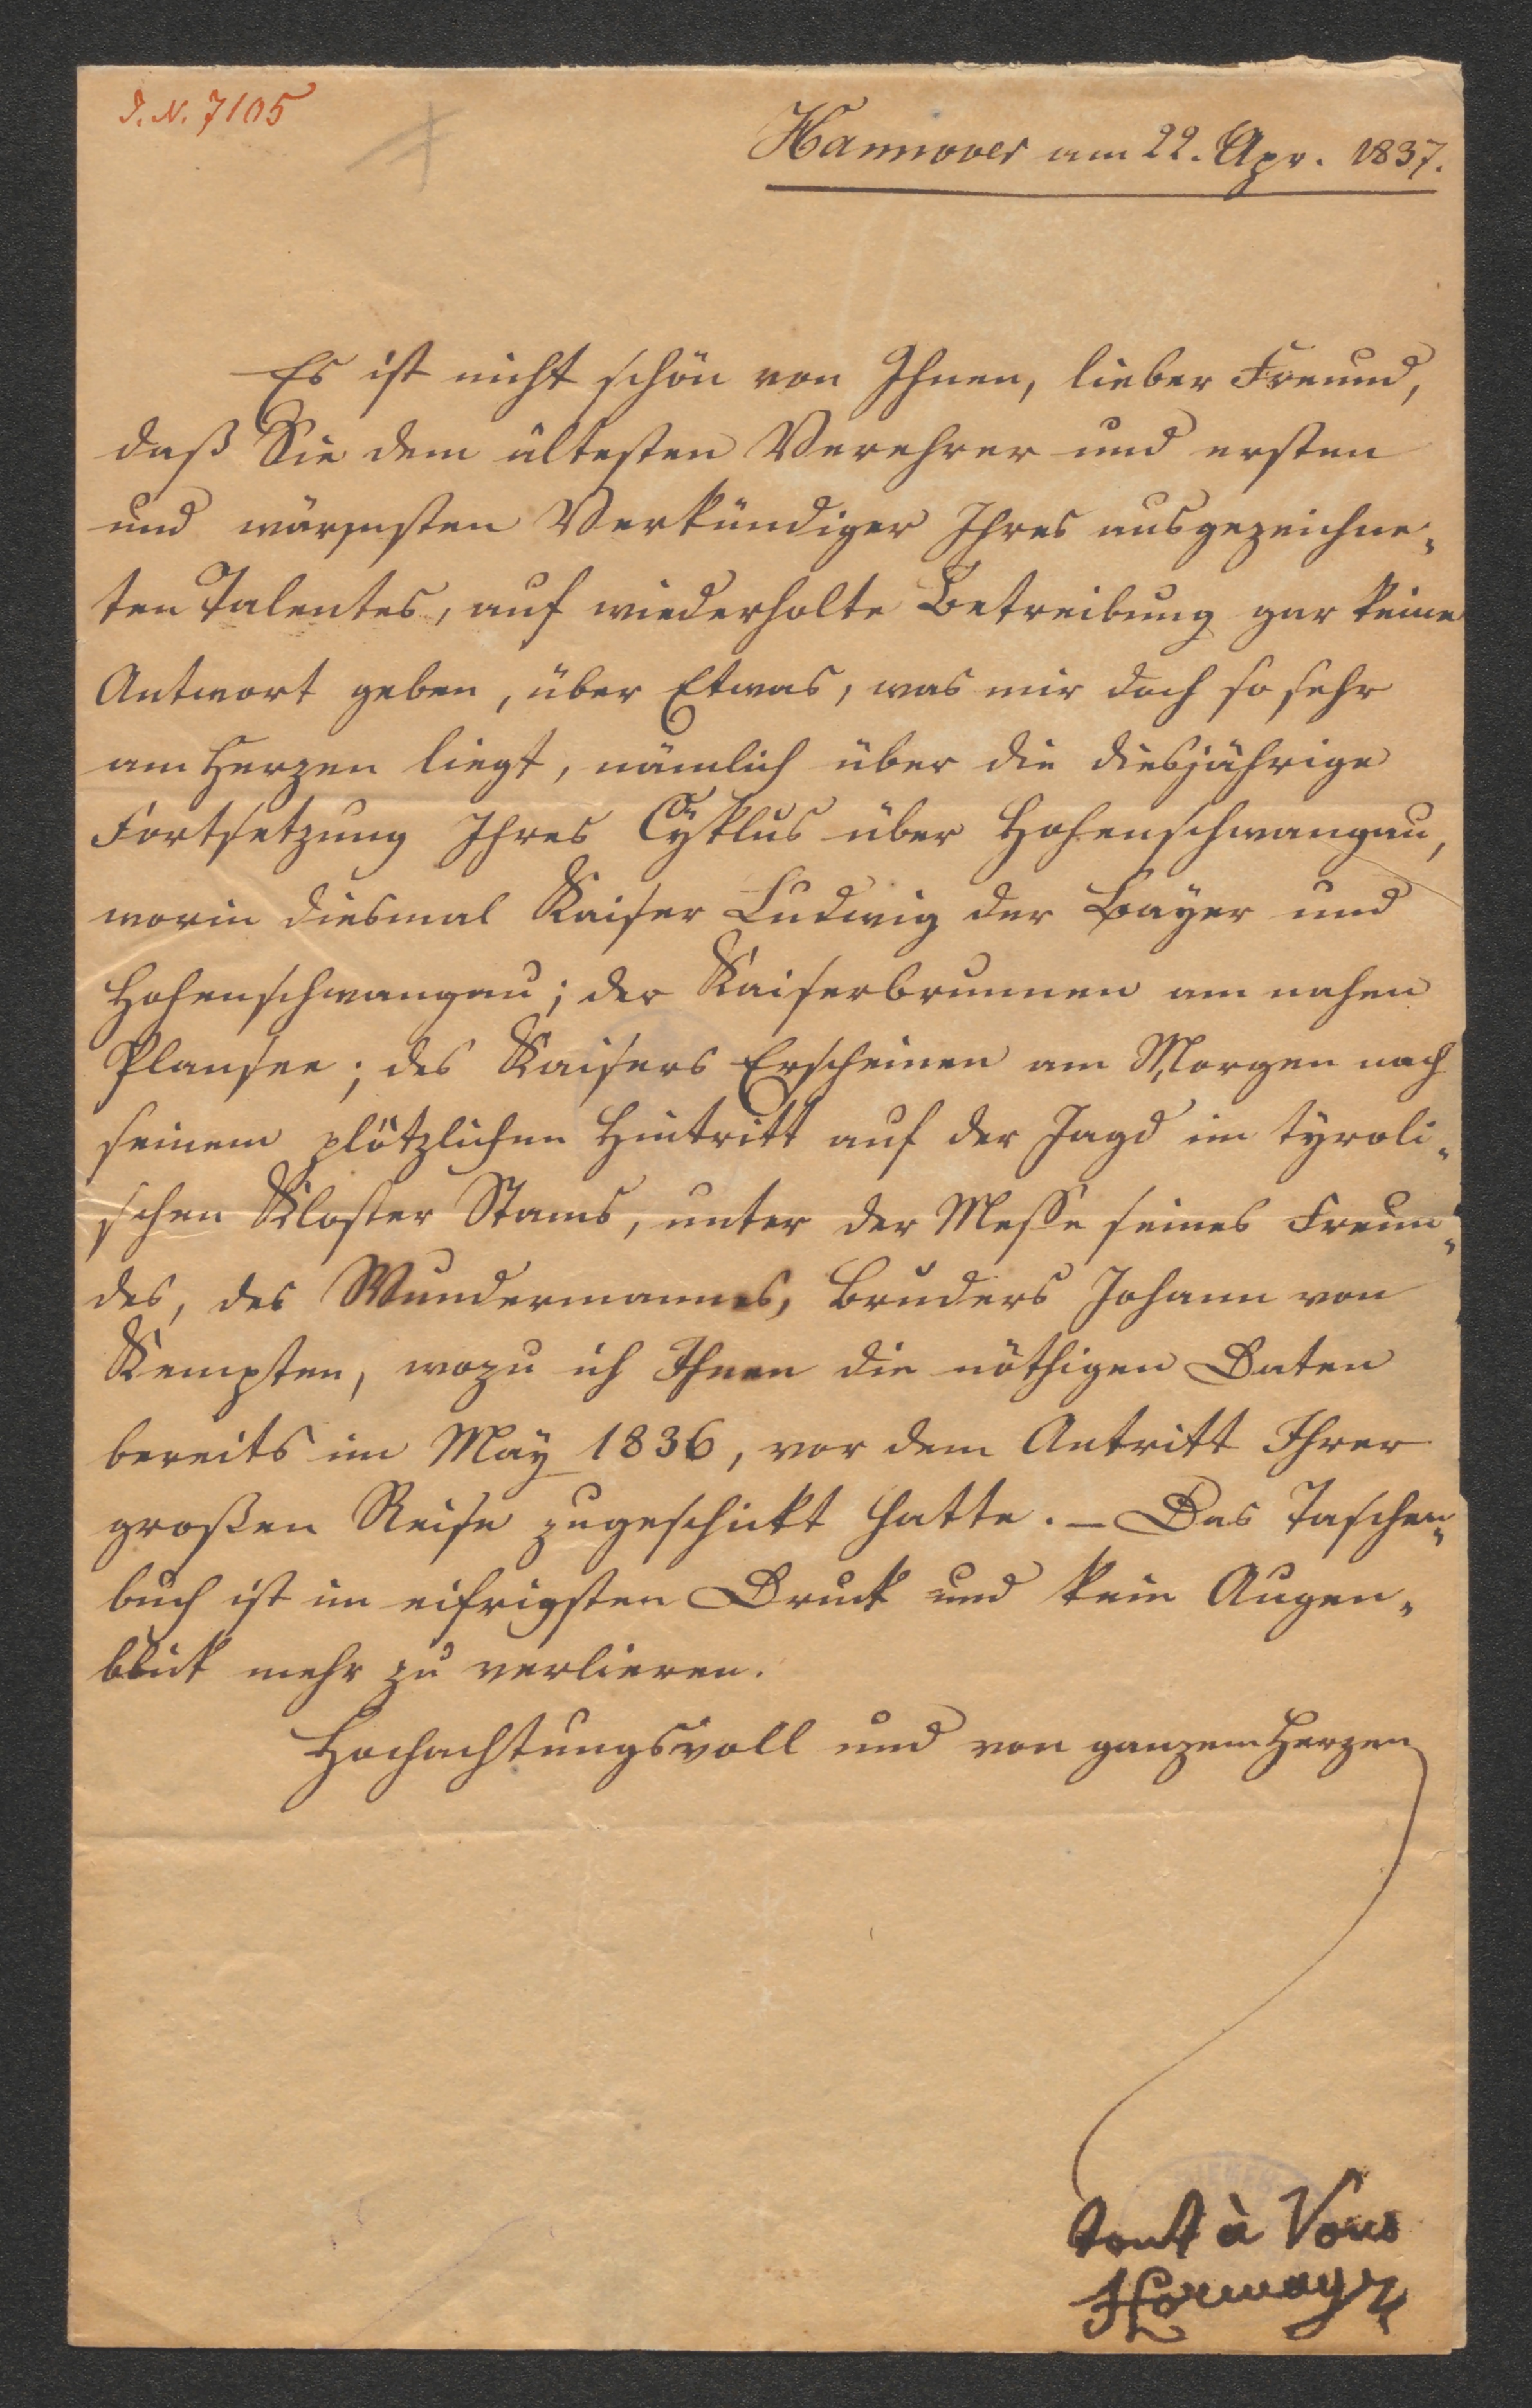 J. N. 7105
Hannover am 22. Apr. 1837.
Es ist nicht schön von Ihnen, lieber Freund,
daß Sie dem ältesten Verehrer und ersten
und wärmsten Verkündiger Ihres ausgezeichne-
ten Talentes, auf wiederholte Betreibung gar keine
Antwort geben, über Etwas, was mir doch so sehr
am Herzen liegt, nämlich über die diesjährige
Fortsetzung Ihres Cyklus über Hohenschwangau,
worin diesmal Kaiser Ludwig der Bayer und
Hohenschwangau; der Kaiserbrunnen am nahen
Plansee; des Kaisers Erscheinen am Morgen nach
seinem plötzlichen Hintritt auf der Jagd im tyroli-
schen Kloster Stams, unter der Messe seines Freun-
des, des Wundermannes, Bruders Johann von
Kempten, wozu ich Ihnen die nöthigen Daten
bereits im May 1836, vor dem Antritt Ihrer
großen Reise zugeschickt hatte. – Das Taschen-
buch ist im eifrigsten Druck und kein Augen-
blick mehr zu verlieren.
Hochachtungsvoll und von ganzem Herzen
tout à Vous
Hormayr